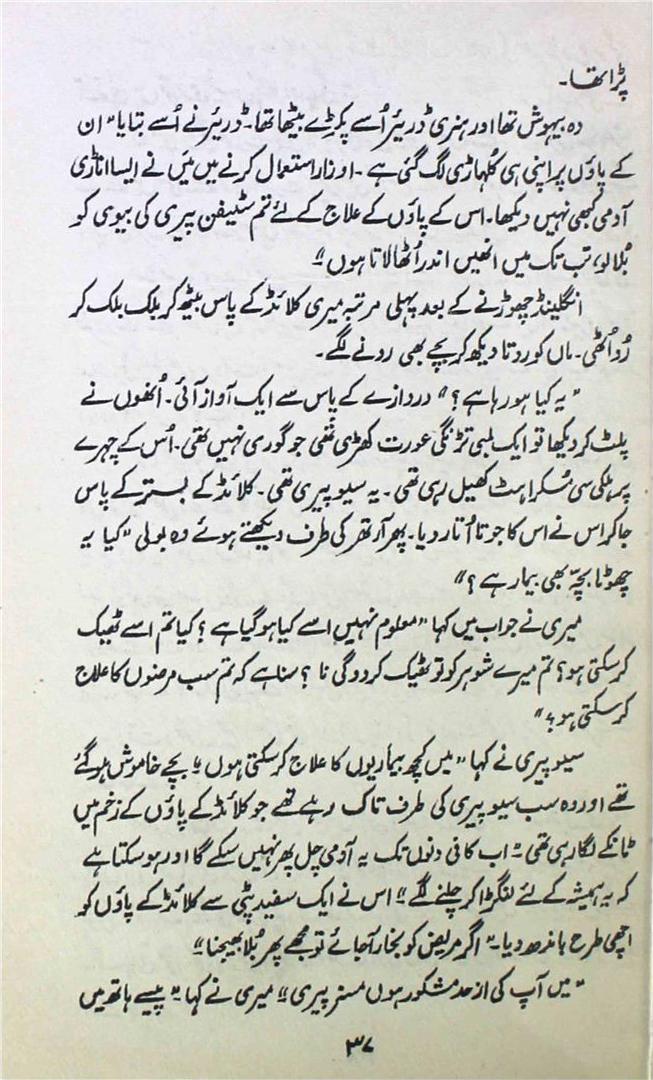 پڑا تھا۔
وہ بیہوش تھا اور ہنری ڈریئر اُسے پکڑے بیٹھا تھا۔ ڈریئر نے اُسے بتایا “ ان
کے پاؤں پر اپنی ہی کلہاڑی لگ گئی ہے ۔ اوزار استعمال کرنے میں مَیں نے ایسا اناڑی
آدمی کبھی نہیں دیکھا۔ اس کے پاؤں کے علاج کے لئے تم سٹیفن پیری کی بیوی کو
بُلا لو، تب تک میں انھیں اندر اُٹھا لاتا ہوں “
انگلینڈ چھوڑنے کے بعد پہلی مرتبہ میری کلائڈ کے پاس بیٹھ کر بلک بلک کر
رُو اُٹھی۔ ماں کو روتا دیکھ کر بچے بھی رونے لگے ۔
“ یہ کیا ہو رہا ہے ؟ “ دروازے کے پاس سے ایک آواز آئی ۔ اُنھوں نے
پلٹ کر دیکھا تو ایک لمبی تڑنگی عورت کھڑی تھی جو گوری نہیں تھی ۔ اُس کے چہرے
پر ہلکی سی مُسکراہٹ کھیل رہی تھی ۔ یہ سیو پیری تھی ۔ کلائڈ کے بستر کے پاس
جا کر اس نے اس کا جوتا اُتار دیا۔ پھر آرتھر کی طرف دیکھتے ہوئے وہ بولی “ کیا یہ
چھوٹا بچّہ بھی بیمار ہے ؟ “
میری نے جواب میں کہا “ معلوم نہیں اسے کیا ہو گیا ہے ؟ کیا تم اسے ٹھیک
کر سکتی ہو؟ تم میرے شوہر کو تو ٹھیک کر دو گی نا ؟ سنا ہے کہ تم سب مرضوں کا علاج
کر سکتی ہو ؟ “
سیو پیری نے کہا “ میں کچھ بیماریوں کا علاج کر سکتی ہوں “ بچے خاموش ہو گئے
تھے اور وہ سب سیو پیری کی طرف تاک رہے تھے جو کلائڈ کے پاؤں کے زخم میں
ٹانکے لگا رہی تھی “ اب کافی دنوں تک یہ آدمی چل پھر نہیں سکے گا اور ہو سکتا ہے
کہ یہ ہمیشہ کے لئے لنگڑا کر چلنے لگے “ اس نے ایک سفید پٹی سے کلائڈ کے پاؤں کو
اچھی طرح باندھ دیا ۔ “ اگر مریض کو بخار آ جائے تو مجھے پھر بُلا بھیجنا “
“ میں آپ کی از حد مشکور ہوں مسز پیری “ میری نے کہا “ پیسے ہاتھ میں
۳۷